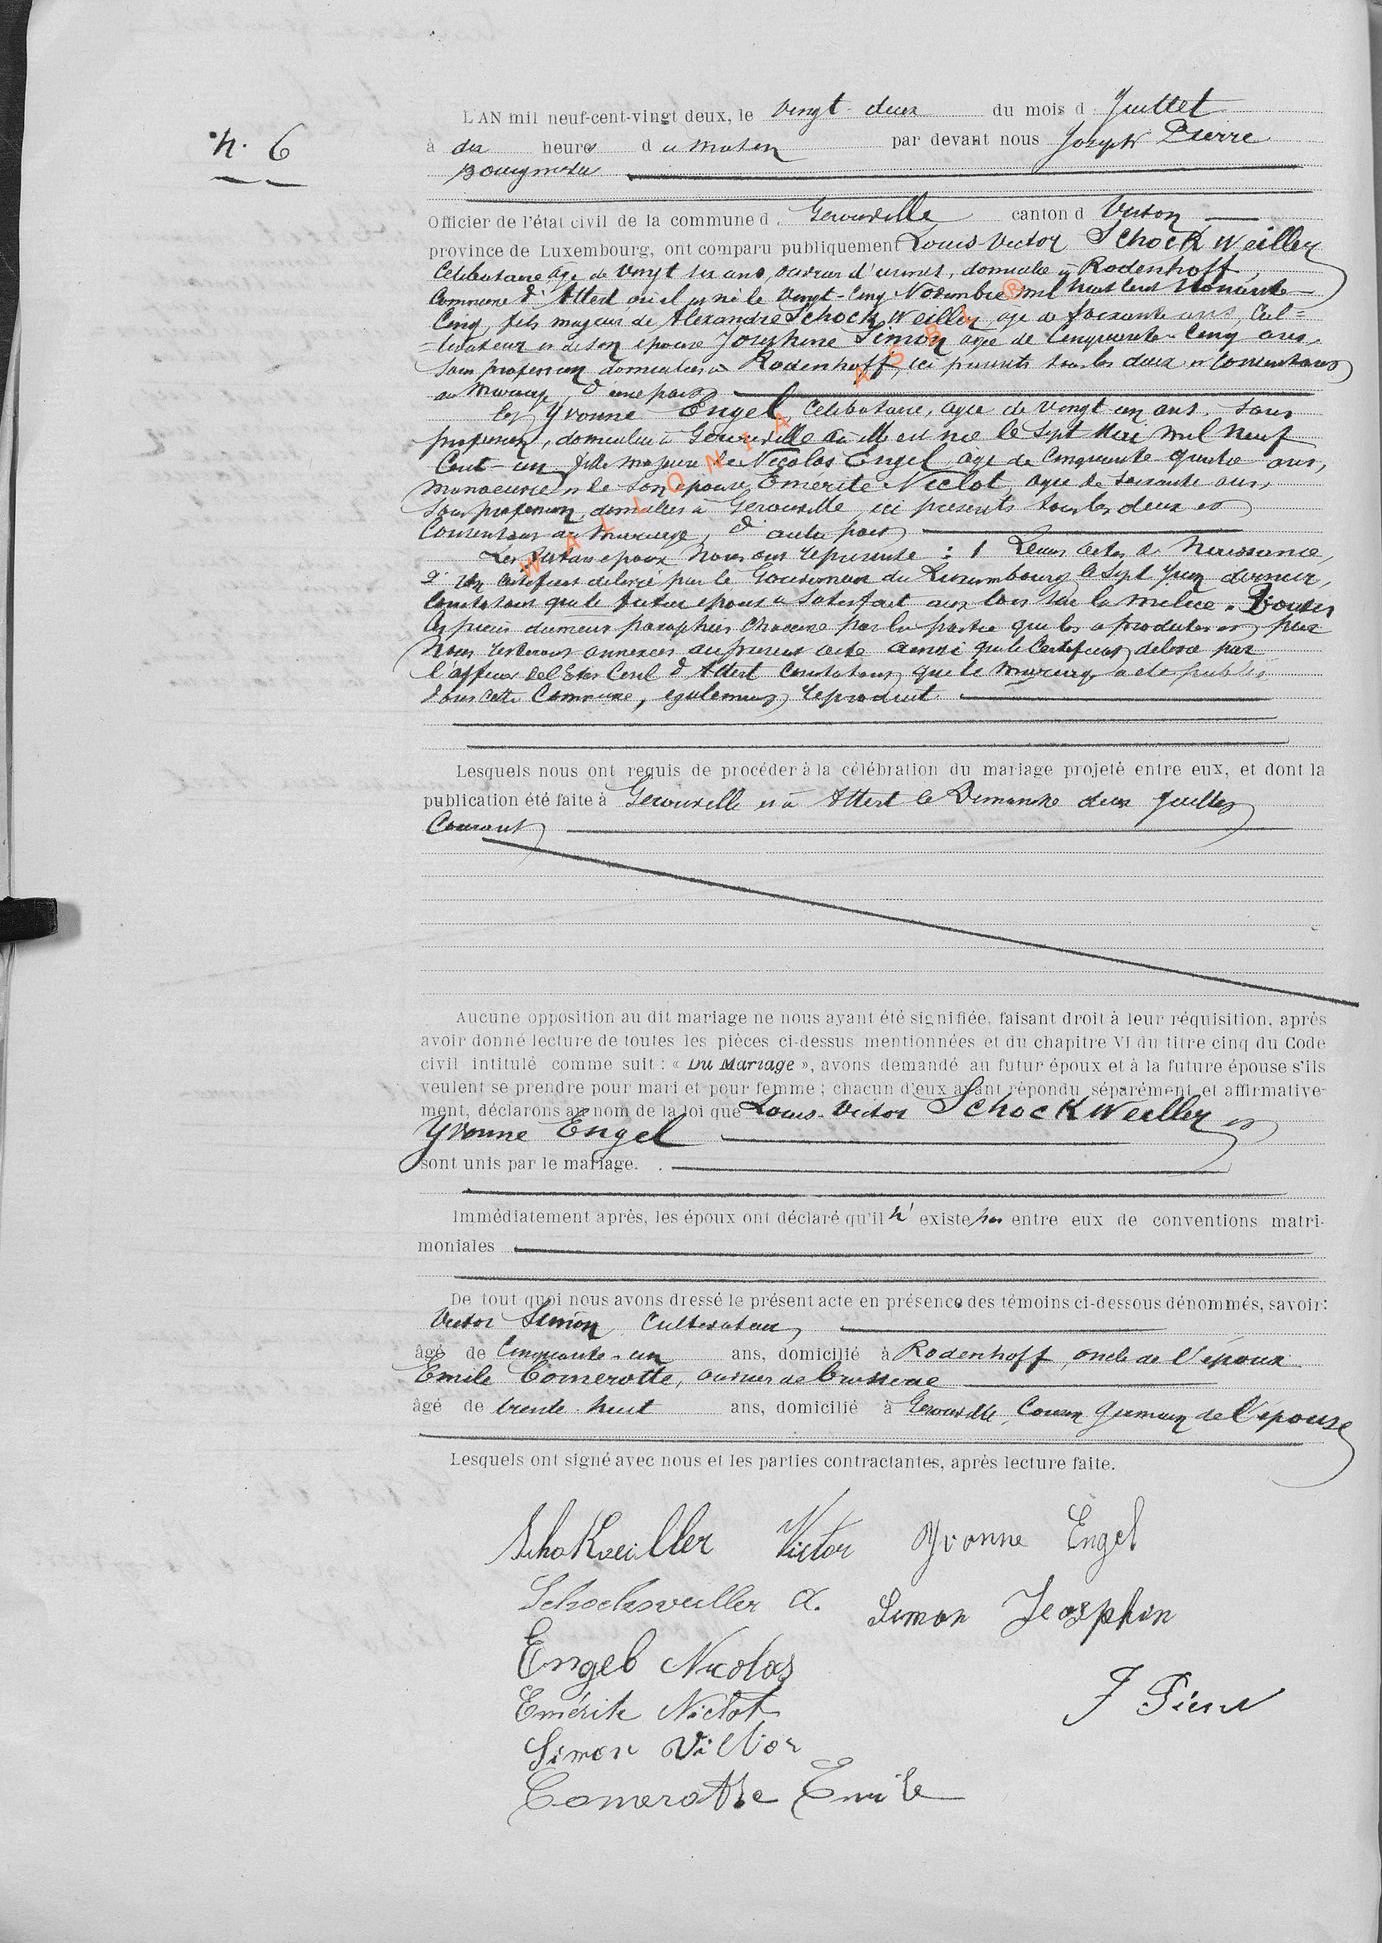 N. 6
L'AN mil neuf-cent-vingt deux, le vingt-deux du mois d Juillet
à dix heures du matin par devant nous Joseph Pierre
Bourgmestre
Officier de l'état civil de la commune d Gérouville canton d Virton
province de Luxembourg, ont comparu publiquement Louis-Victor Schockweiller
Célibataire âgé de vingt six ans, ouvrier d'usines, domicilié à Rodenhoff,
Commune d'Attert où il est né le vingt-cinq Novembre mil huit cent nonante
Cinq, fils majeur de Alexandre Schockweiller âgé de soixante ans, Cul=
=tivateur et de son épouse Joséphine Simon âgée de Cinquante-Cinq ans,
sans profession domiciliés à Rodenhoff, ici présents tous les deux et consentants
au mariage, d'une part
Et Yvonne Engel, Célibataire, âgée de vingt un ans, sans
profession, domiciliée à Gérouville où elle est née le sept Mai mil neuf
Cent-un, fille majeure de Nicolas Engel âgé de Cinquante quatre ans,
manoeuvre et de son épouse Emérite Niclot, âgée de soixante ans,
sans profession, domiciliés à Gérouville, ici présents tous les deux et
Consentans au mariage, d'autre part
Les futurs époux nous ont représenté : 1 Leurs actes de Naissance,
2 Un certificat délivré par le Gouverneur du Luxembourg le sept Juin dernier,
Constatant que le futur époux a satisfait aux lois sur la milice. Toutes
les pièces dûment paraphées chacune par la partie qui les a produites et par
Nous resteront annexées au présent acte ainsi que le Certificat délivré par
l'officier de l'Etat Civil d'Attert Constatant que le mariage a été publié
dans cette Commune, également reproduit
Lesquels nous ont requis de procéder à la célébration du mariage projeté entre eux, et dont la
publication été faite à Gérouville et à Attert le Dimanche deux Juillet
Courant
Aucune opposition au dit mariage ne nous ayant été signifiée, faisant droit à leur réquisition, après
avoir donné lecture de toutes les pièces ci-dessus mentionnées et du chapitre VI du titre cinq du Code
civil intitulé comme suit : « Du Mariage », avons demandé au futur époux et à la future épouse s'ils
veulent se prendre pour mari et pour femme ; chacun d'eux ayant répondu séparément et affirmative-
ment, déclarons au nom de la loi que Louis-Victor Schockweiller et
Yvonne Engel
sont unis par le mariage.
Immédiatement après, les époux ont déclaré qu'il n' existe pas entre eux de conventions matri-
moniales
De tout quoi nous avons dressé le présent acte en présence des témoins ci-dessous dénommés, savoir :
Victor Simon, Cultivateur,
âgé de Cinquante-un ans, domicilié à Rodenhoff, oncle de l'époux
Emile Comerotte, ouvrier de brasserie
âgé de trente-huit ans, domicilié à Gérouville, Cousin germain de l'épouse
Lesquels ont signé avec nous et les parties contractantes, après lecture faite.
Schokweiller Victor Yvonne Engel
Schockweiller A. Simon Jeosphin
Engel Nicolas
J Pierre
Emérite Niclot
Simon Victor
Comerotte Emile
WALLONIA ASBL ®